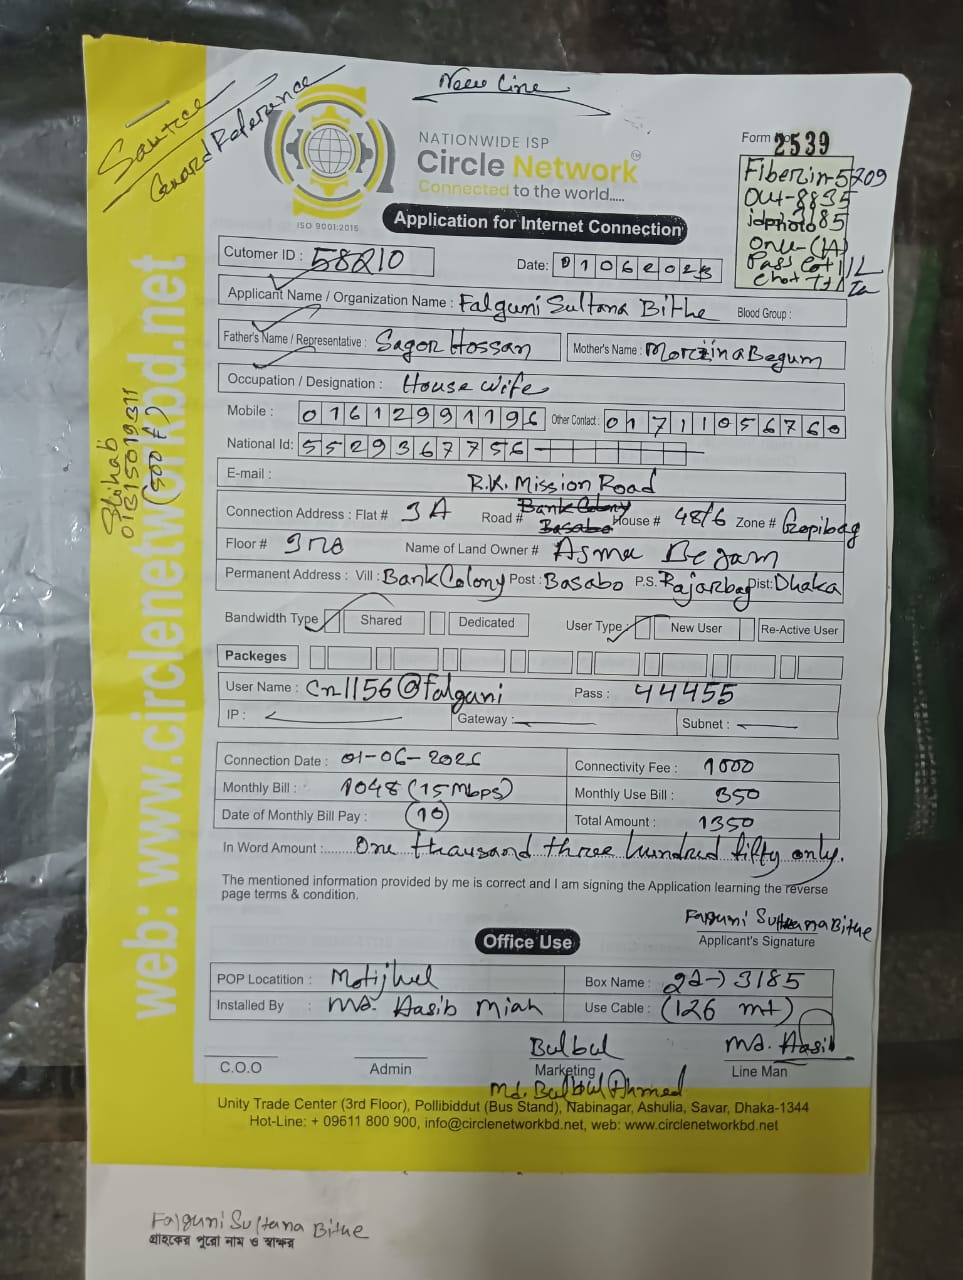 New Line
Gard Reference
NATIONWIDE ISP
Circle Network
Connected to the world.....
ISO 9001:2015
Form 2539
Fiber in-5209
Out-8835
id photo 3185
Onu-(1A)
Application for Internet Connection
Cutomer ID : 58210
Date: 01062026
Applicant Name / Organization Name : Falguni Sultana Bithe Blood Group :
Father's Name / Representative : Sagor Hossan Mother's Name : Morzina Begum
Occupation / Designation : House wife
Mobile : 01612991196 Other Contact : 01711056760
National Id: 5529367756
E-mail :
R.K. Mission Road
Connection Address : Flat # 3A Road # Bank Colony Basabo House # 48/6 Zone # Gopibag
Floor # 3rd Name of Land Owner # Asma Begam
Permanent Address : Vill : Bank Colony Post : Basabo P.S. Rajarbag Dist: Dhaka
Bandwidth Type Shared Dedicated User Type : New User Re-Active User
Packeges
User Name : Cn1156@falguni Pass : 44455
IP : Gateway : Subnet :
Connection Date : 01-06-2026 Connectivity Fee : 1000
Monthly Bill : 1048 (15Mbps) Monthly Use Bill : 350
Date of Monthly Bill Pay : (10) Total Amount : 1350
In Word Amount :...... One thousand three hundred fifty only.
The mentioned information provided by me is correct and I am signing the Application learning the reverse
page terms & condition.
Falguni Sultana Bithe
Applicant's Signature
Office Use
POP Locatition : Motijhel Box Name : 22→3185
Installed By : Md. Hasib Miah Use Cable : (126 mt)
Bulbul Md. Hasib
C.O.O Admin Marketing Line Man
Md. Bulbul Ahmed
Unity Trade Center (3rd Floor), Pollibiddut (Bus Stand), Nabinagar, Ashulia, Savar, Dhaka-1344
Hot-Line: + 09611 800 900, info@circlenetworkbd.net, web: www.circlenetworkbd.net
web: www.circlenetworkbd.net
Shihab
01315019311
(500 ৳)
Falguni Sultana Bithe
গ্রাহকের পুরো নাম ও স্বাক্ষর